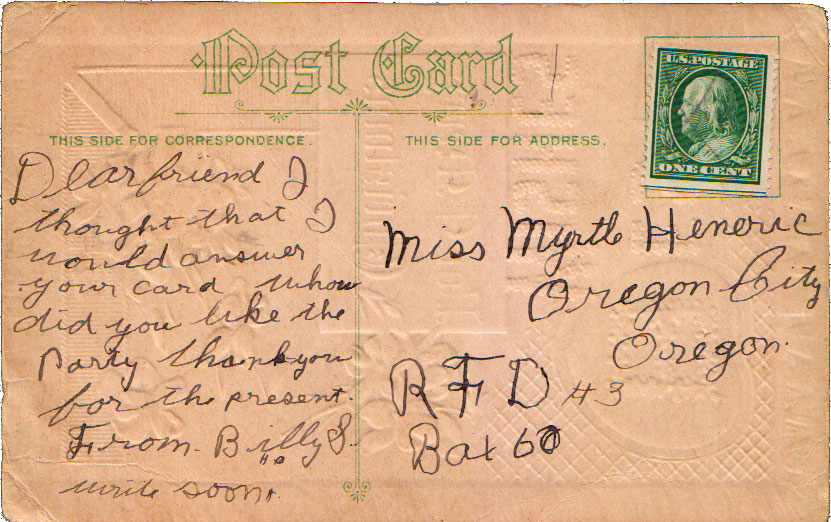 Post Card
U.S. POSTAGE
ONE CENT
THIS SIDE FOR CORRESPONDENCE.
THIS SIDE FOR ADDRESS.
Dear friend I
thought that I
would answer
your card whow
did you like the
Party thank you
for the present.
From. Billy S.
write soon.
Miss Myrtle Heneric
Oregon City
Oregon.
R F D #3
Box 60